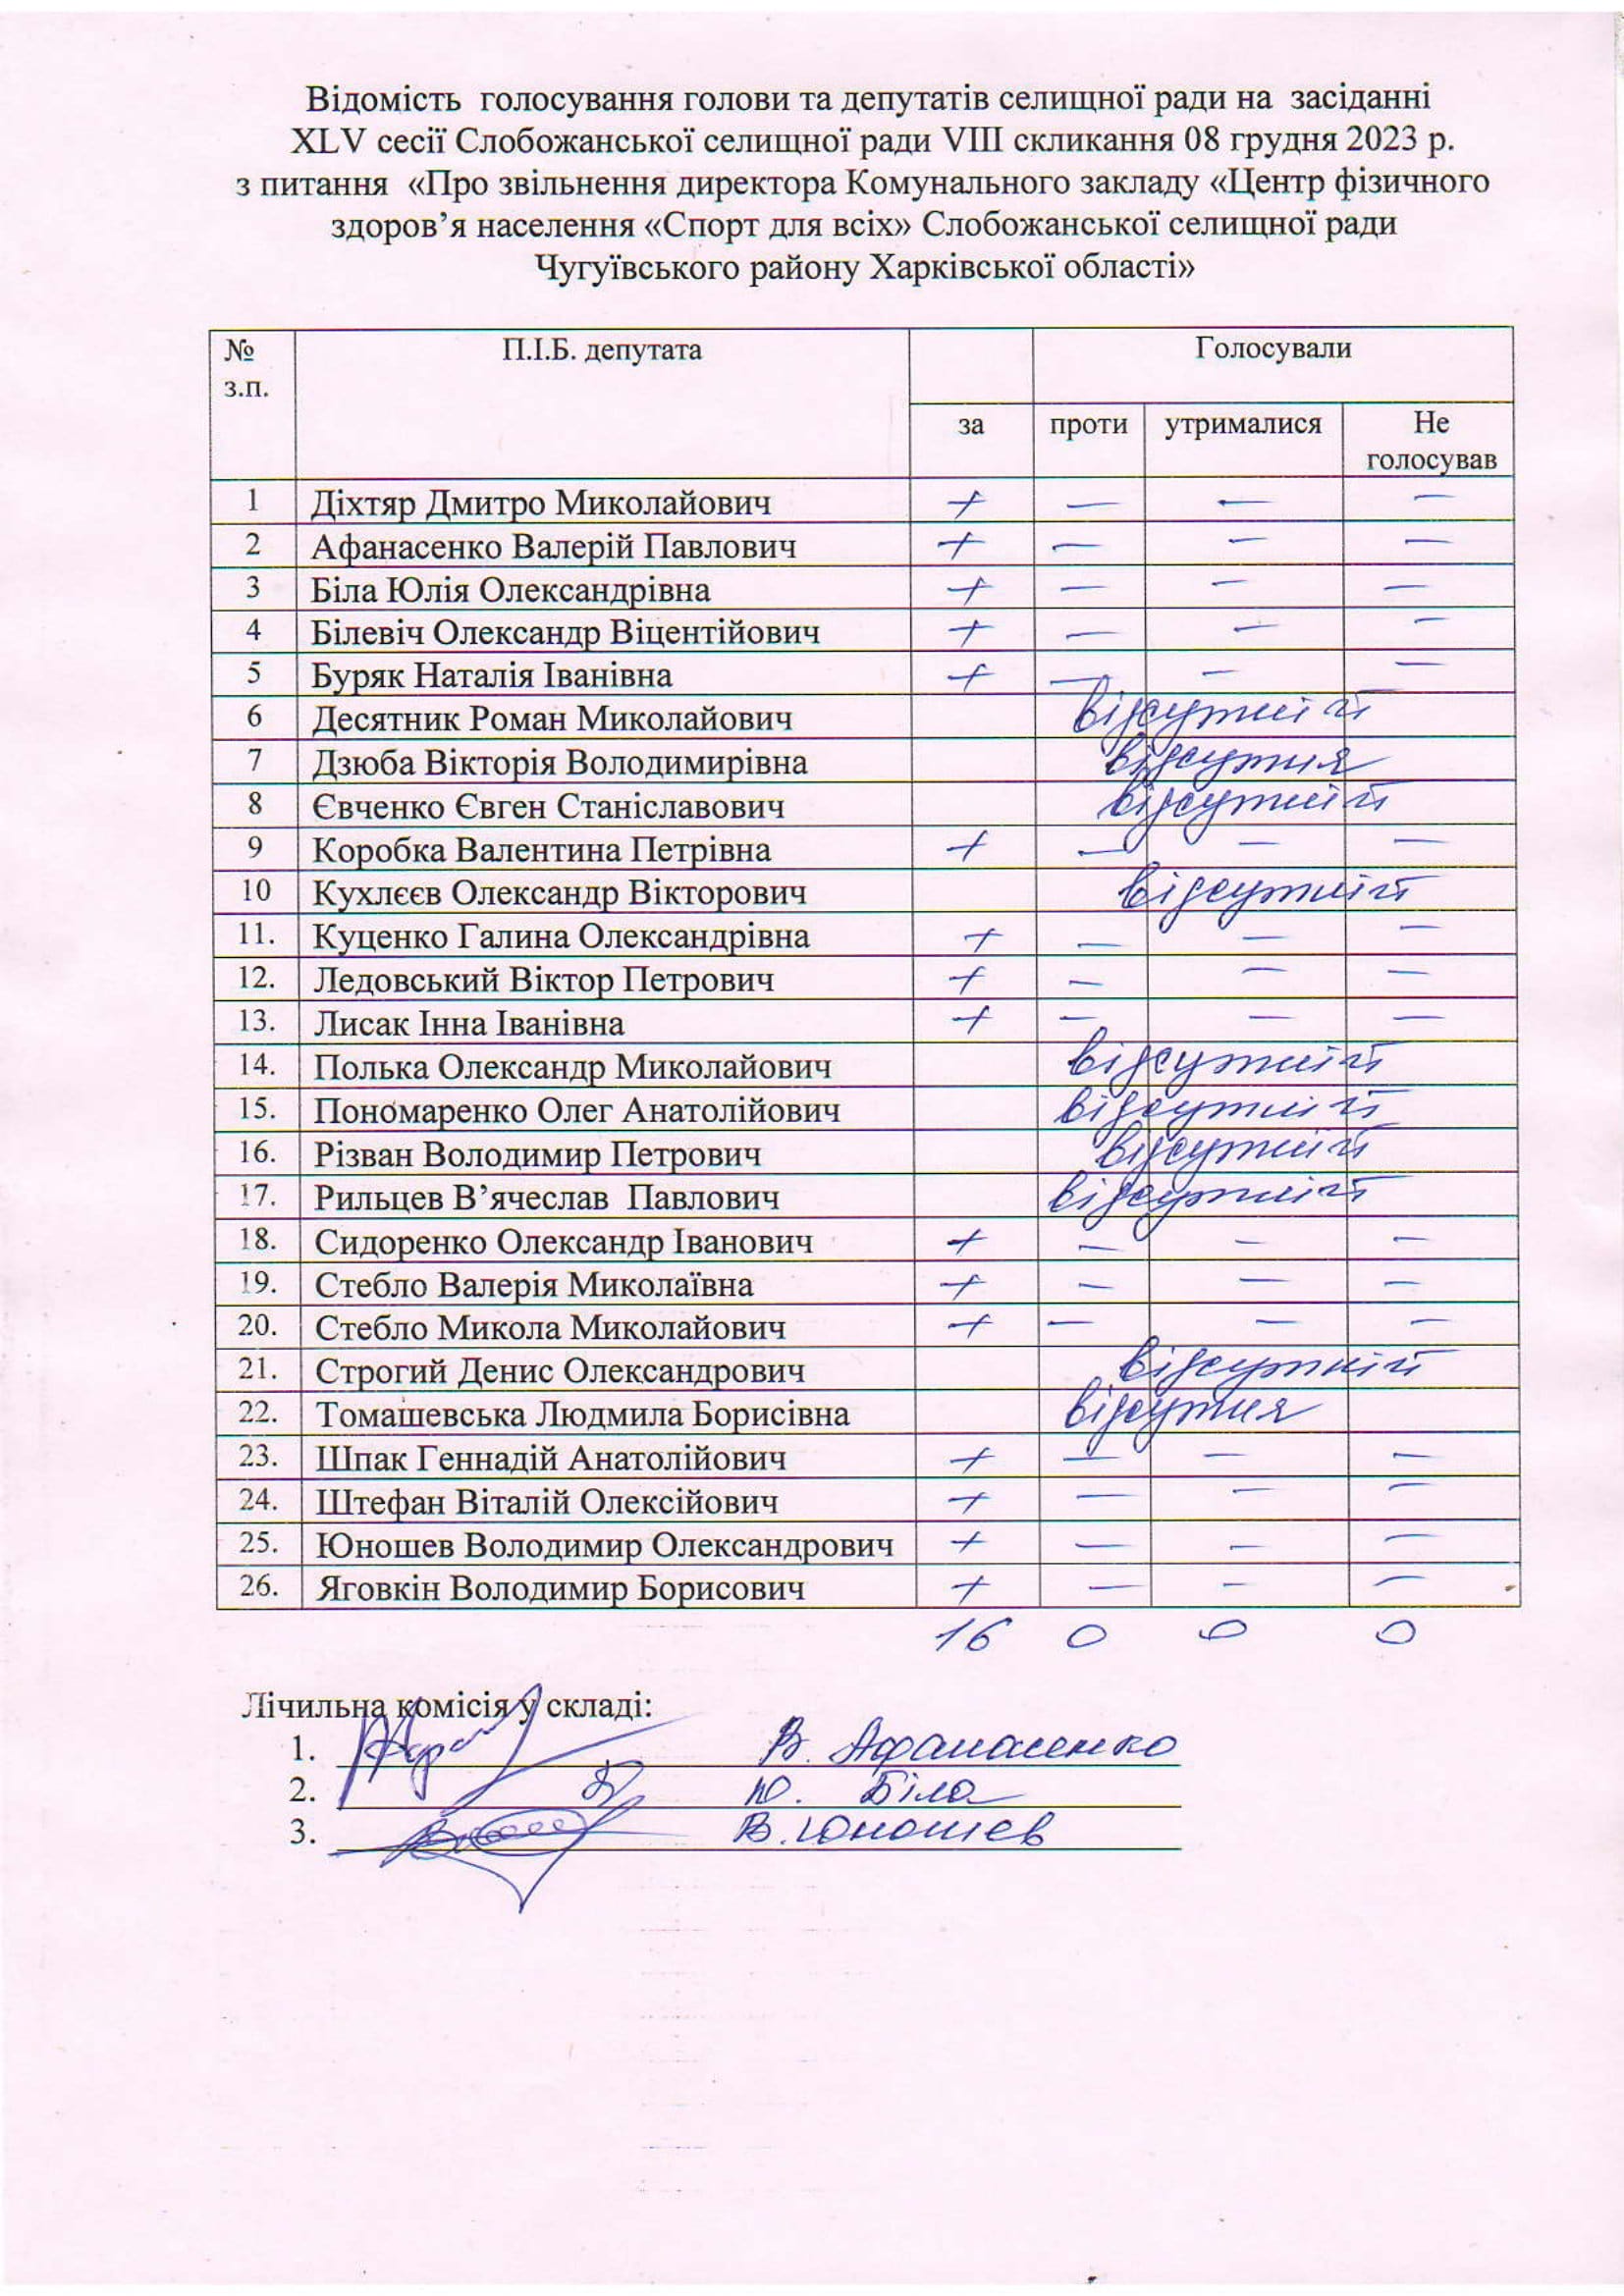 Відомість голосування голови та депутатів селищної ради на засіданні
XLV сесії Слобожанської селищної ради VIII скликання 08 грудня 2023 р.
з питання «Про звільнення директора Комунального закладу «Центр фізичного
здоров’я населення «Спорт для всіх» Слобожанської селищної ради
Чугуївського району Харківської області»
№ з.п. П.І.Б. депутата Голосували
за проти утрималися Не голосував
1 Діхтяр Дмитро Миколайович + — — —
2 Афанасенко Валерій Павлович + — — —
3 Біла Юлія Олександрівна + — — —
4 Білевіч Олександр Віцентійович + — — —
5 Буряк Наталія Іванівна + — — —
6 Десятник Роман Миколайович відсутній
7 Дзюба Вікторія Володимирівна відсутня
8 Євченко Євген Станіславович відсутній
9 Коробка Валентина Петрівна + — — —
10 Кухлєєв Олександр Вікторович відсутній
11. Куценко Галина Олександрівна + — — —
12. Ледовський Віктор Петрович + — — —
13. Лисак Інна Іванівна + — — —
14. Полька Олександр Миколайович відсутній
15. Пономаренко Олег Анатолійович відсутній
16. Різван Володимир Петрович відсутній
17. Рильцев В’ячеслав Павлович відсутній
18. Сидоренко Олександр Іванович + — — —
19. Стебло Валерія Миколаївна + — — —
20. Стебло Микола Миколайович + — — —
21. Строгий Денис Олександрович відсутній
22. Томашевська Людмила Борисівна відсутня
23. Шпак Геннадій Анатолійович + — — —
24. Штефан Віталій Олексійович + — — —
25. Юношев Володимир Олександрович + — — —
26. Яговкін Володимир Борисович + — — —
16 0 0 0
Лічильна комісія у складі:
1. В. Афанасенко
2. Ю. Біла
3. В. Юношев